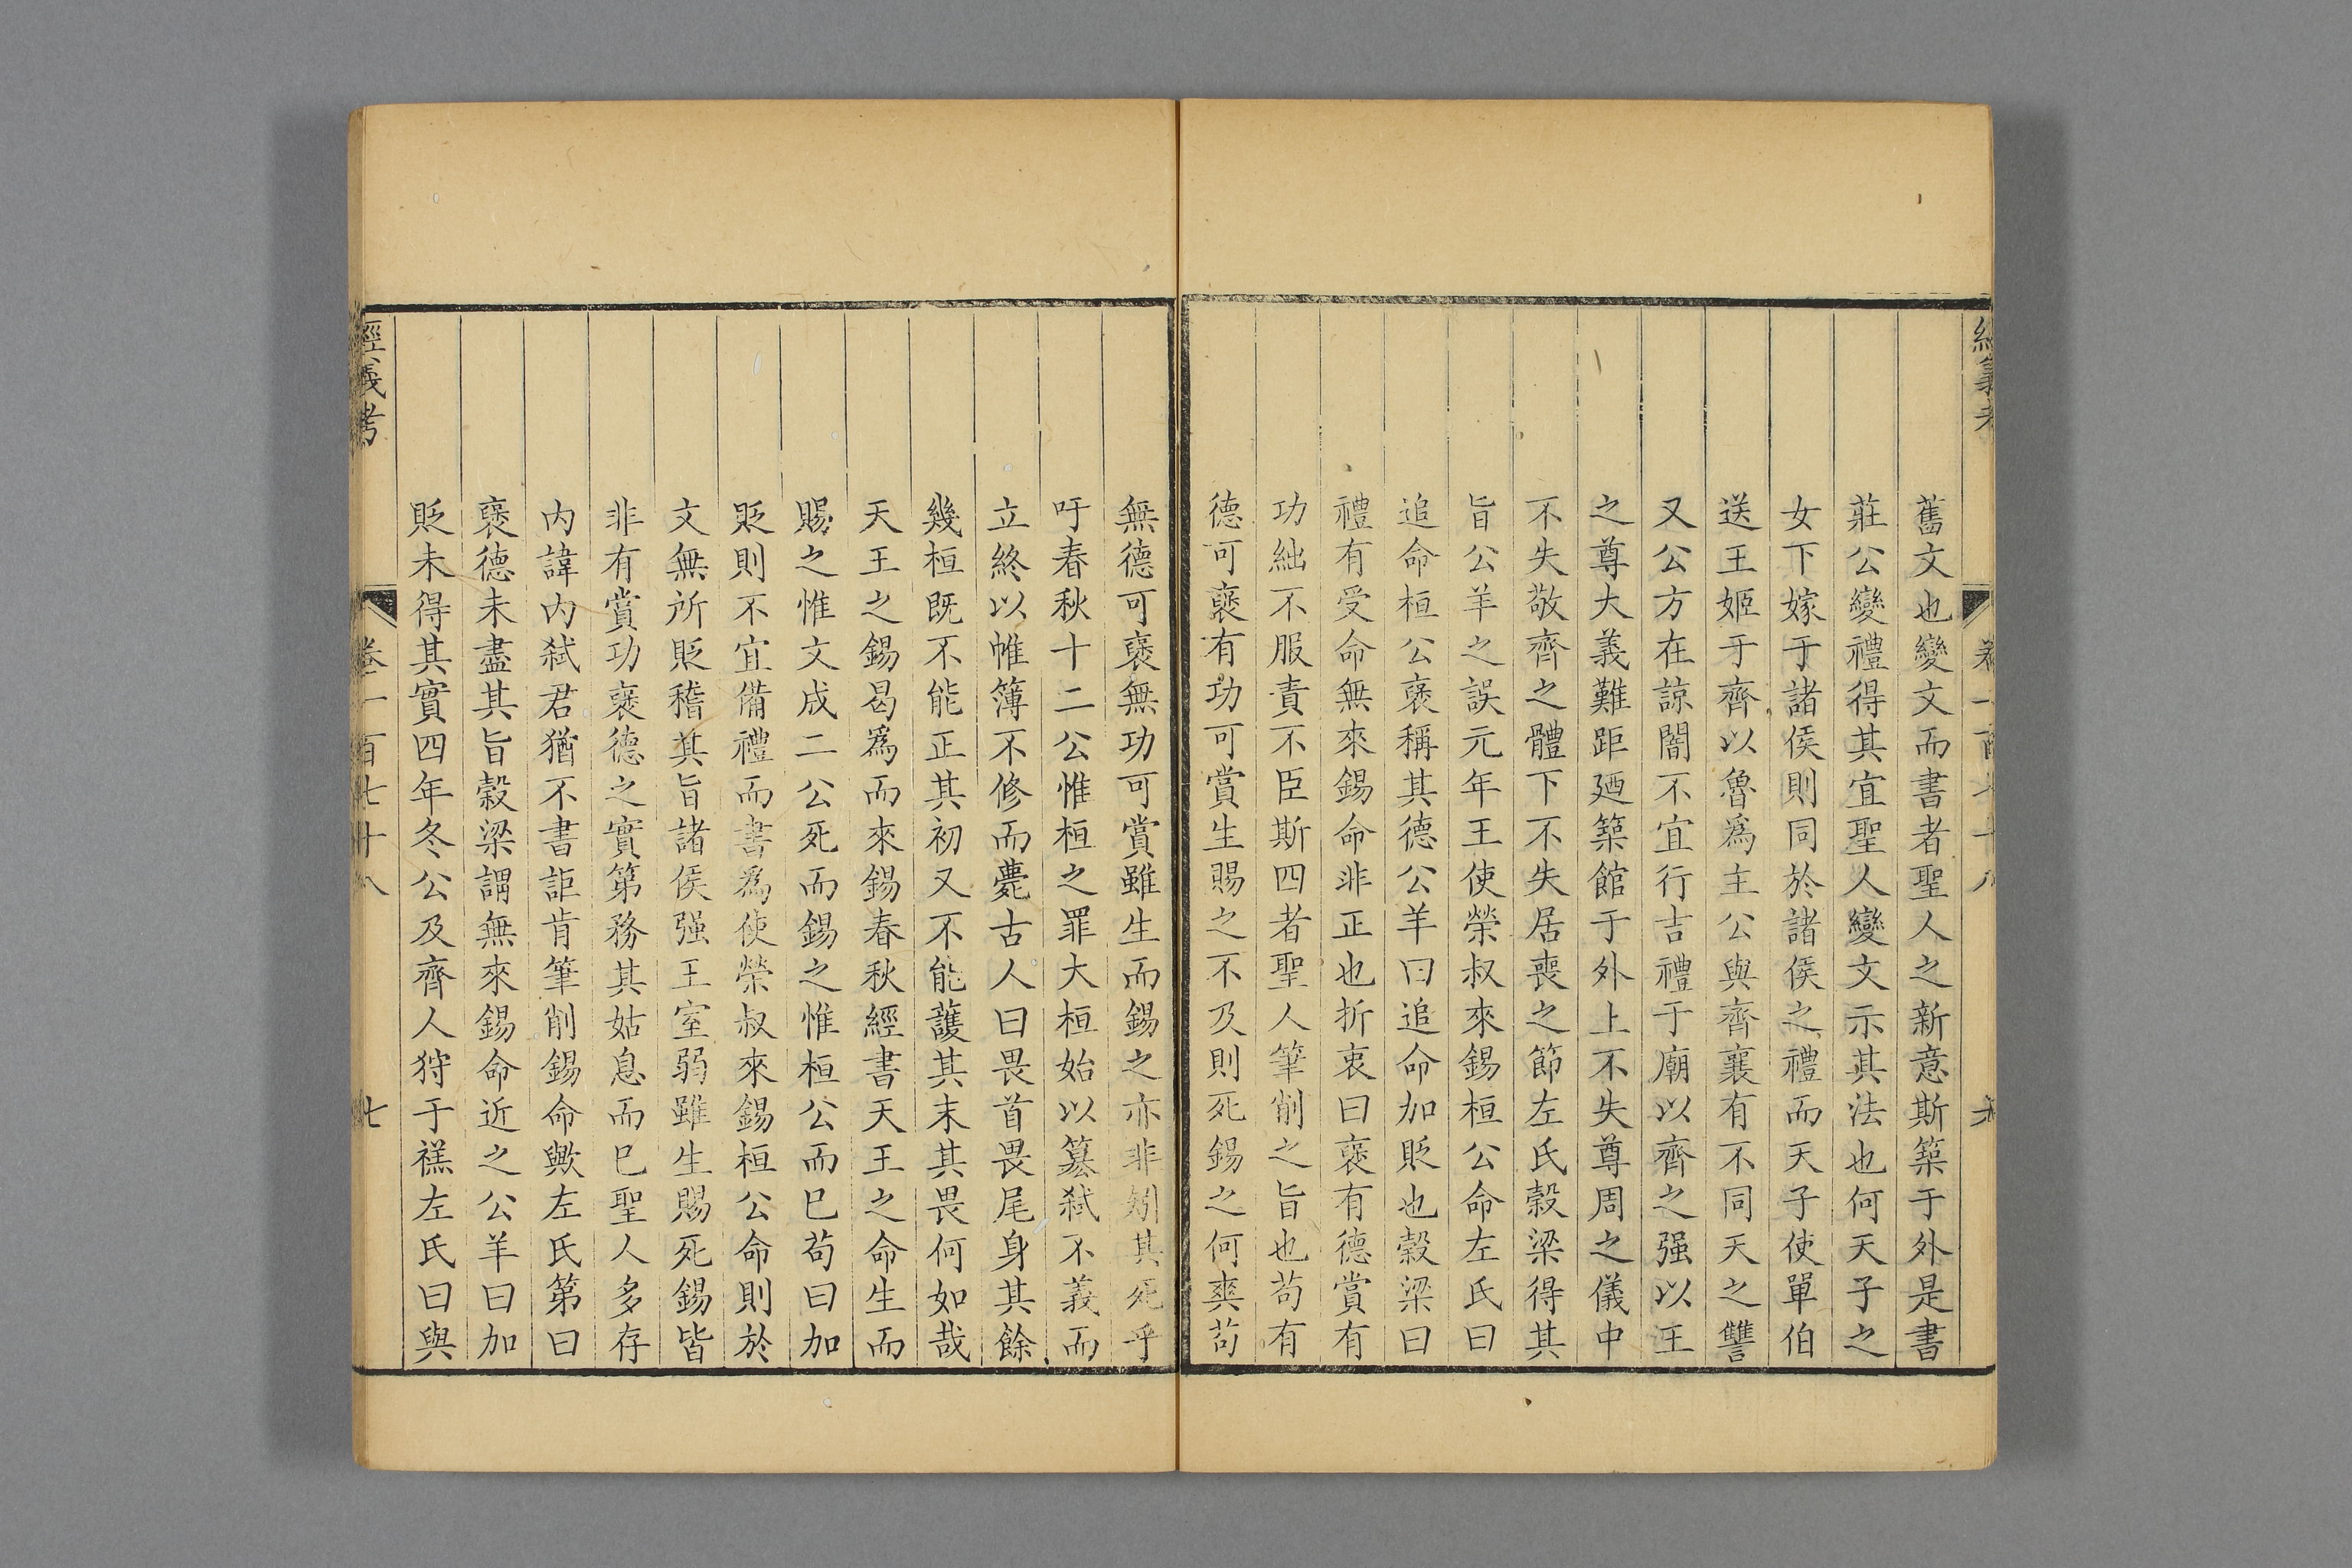 舊文也變文而書者聖人之新意斯築于外是書
莊公變禮得其宜聖人變文示其法也何天子之
女下嫁于諸侯則同於諸侯之禮而天子使單伯
送王姬于齊以魯爲主公與齊襄有不同天之讐
又公方在諒闇不宜行吉禮于廟以齊之强以王
之尊大義難距廼築館于外上不失尊周之儀中
不失敬齊之體下不失居喪之節左氏榖梁得其
旨公羊之誤元年王使榮叔來錫桓公命左氏曰
追命桓公襃稱其德公羊曰追命加貶也榖梁曰
禮有受命無來錫命非正也折衷曰襃有德賞有
功絀不服責不臣斯四者聖人筆削之旨也苟有
德可襃有功可賞生賜之不及則死錫之何爽苟
無德可襃無功可賞雖生而錫之亦非矧其死乎
吁春秋十二公惟桓之罪大桓始以簒弑不義而
立終以帷簿不修而薨古人曰畏首畏尾身其餘
幾桓既不能正其初又不能護其末其畏何如哉
天王之錫曷爲而來錫春秋經書天王之命生而
賜之惟文成二公死而錫之惟桓公而巳苟曰加
貶則不宜備禮而書爲使榮叔來錫桓公命則於
文無所貶稽其旨諸侯强王室弱雖生賜死錫皆
非有賞功襃德之實第務其姑息而巳聖人多存
内諱内弑君猶不書詎肯筆削錫命歟左氏第曰
襃德未盡其旨榖梁謂無來錫命近之公羊曰加
貶未得其實四年冬公及齊人狩于禚左氏曰與
經義考
卷一百七十八
七